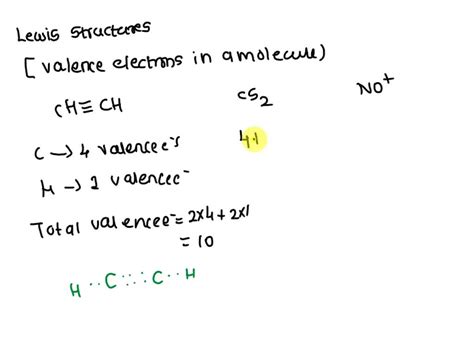 Lewis Structures
[ valence electrons in a molecule)
CH≡CH
CS2
NO+
C → 4 valence e-s
4+
H → 1 valence e-
Total valence e- = 2×4+2×1
= 10
H ·· C ::: C ·· H